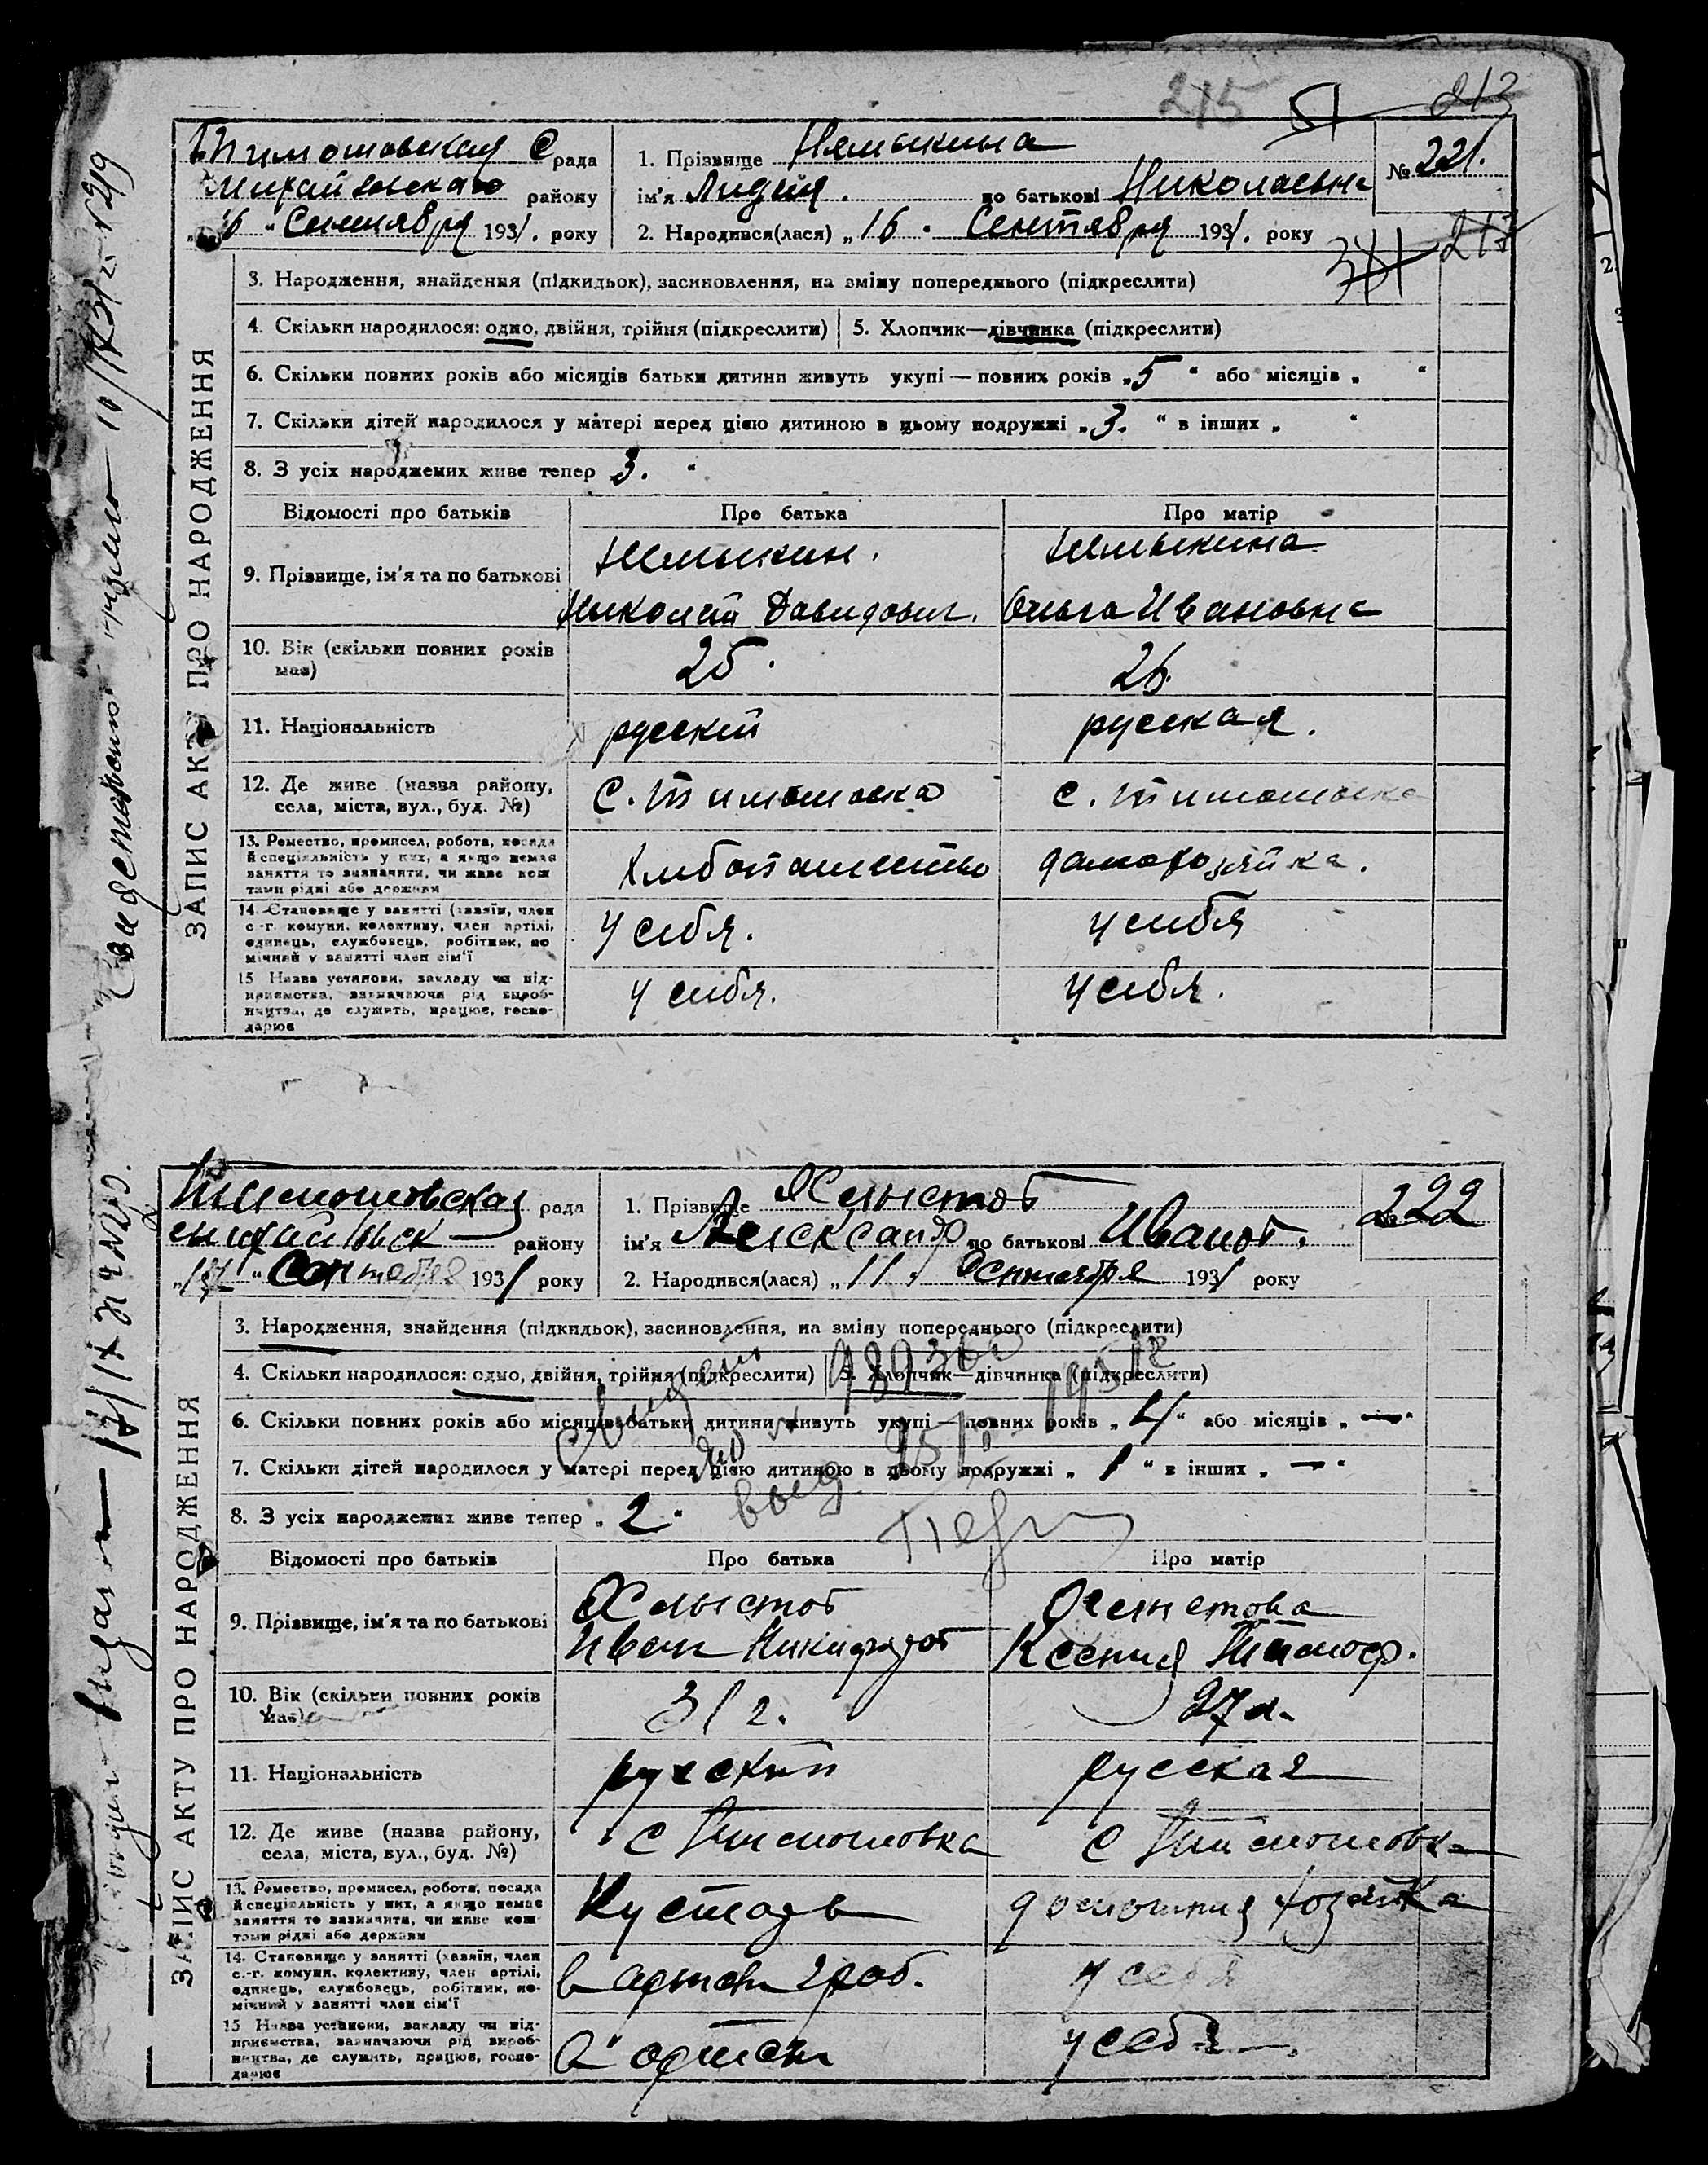 215 51 213
Тимошовская С рада
Михайловскаго району
16 " Сентября 1931. року
1. Прізвище Нямыкина
ім'я Лидия. по батькові Николаевна
2. Народився(лася) „16. Сентября 1931. року
№ 221.
217
3. Народження, знайдення (підкидьок), засиновлення, на зміну попереднього (підкреслити)
4. Скільки народилося: одно, двійня, трійня (підкреслити) 5. Хлопчик—дівчинка (підкреслити)
6. Скільки повних років або місяців батьки дитини живуть укупі — повних років „5 " або місяців „ "
7. Скільки дітей народилося у матері перед цією дитиною в цьому подружжі „3. " в інших „ "
8. З усіх народжених живе тепер 3. "
Відомості про батьків Про батька Про матір
9. Прізвище, ім'я та по батькові
Нямыкин. Нямыкина
Николай Давидович. Ольга Ивановна
10. Вік (скільки повних років має) 25. 26.
11. Національність русский русская.
12. Де живе (назва району,
села, міста, вул., буд. №) с. Тимошовка с. Тимошовка
13. Ремество, промисел, робота, посада
й спеціяльність у них, а якщо немає
заняття то зазначити, чи живе кош
тами рідні або держави
Хлебопашество домохозяйка.
14. Становище у занятті (хазяїн, член
с.-г. комуни, колективу, член артілі,
одинець, службовець, робітник, по
мічний у занятті член сім'ї
у себя. у себя
15 Назва установи, закладу чи під-
приємства, зазначаючи рід вироб-
ництва, де служить, працює, госпо-
дарює
у себя. у себя.
ЗАПИС АКТУ ПРО НАРОДЖЕННЯ
Тимошовская рада
Михайловск району
" Сентября 1931 року
1. Прізвище Хлыстов
ім'я Александр по батькові Иванов.
2. Народився(лася) „11. Сентября 1931 року
№ 222
3. Народження, знайдення (підкидьок), засиновлення, на зміну попереднього (підкреслити)
4. Скільки народилося: одно, двійня, трійня (підкреслити) 5. Хлопчик—дівчинка (підкреслити)
6. Скільки повних років або місяців батьки дитини живуть укупі — повних років „4" або місяців „—"
7. Скільки дітей народилося у матері перед цією дитиною в цьому подружжі „ 1 " в інших „ — "
8. З усіх народжених живе тепер „ 2. "
Відомості про батьків Про батька Про матір
9. Прізвище, ім'я та по батькові
Хлыстов Хлыстова
Иван Никифоров Ксения Тимоф.
10. Вік (скільки повних років має) 31 г. 27 л.
11. Національність русский русская
12. Де живе (назва району,
села, міста, вул., буд. №) с Тимошовка с Тимошовка
13. Ремество, промисел, робота, посада
й спеціяльність у них, а якщо немає
заняття то зазначити, чи живе кош-
тами рідні або держави
Кустарь домашняя хозяйка
14. Становище у занятті (хазяїн, член
с.-г. комуни, колективу, член артілі,
одинець, службовець, робітник, по-
мічний у занятті член сім'ї
в артели у себя
15 Назва установи, закладу чи під-
приємства, зазначаючи рід вироб-
ництва, де служить, працює, госпо-
дарює
в артели у себя
ЗАПИС АКТУ ПРО НАРОДЖЕННЯ